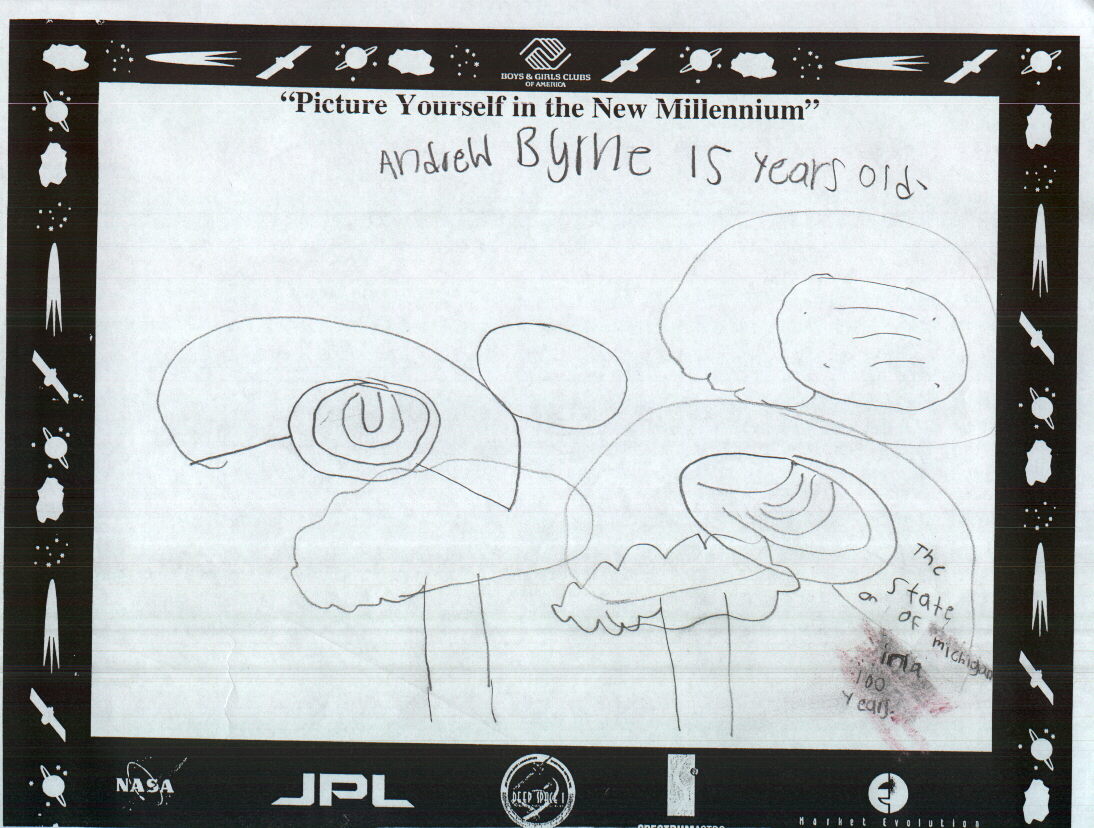 BOYS & GIRLS CLUBS
OF AMERICA
“Picture Yourself in the New Millennium”
Andrew Byrne 15 years old.
The
State
on OF
michigan
in a
100
years.
NASA
JPL
DEEP SPACE 1
SPECTRUMASTRO
Market Evolution